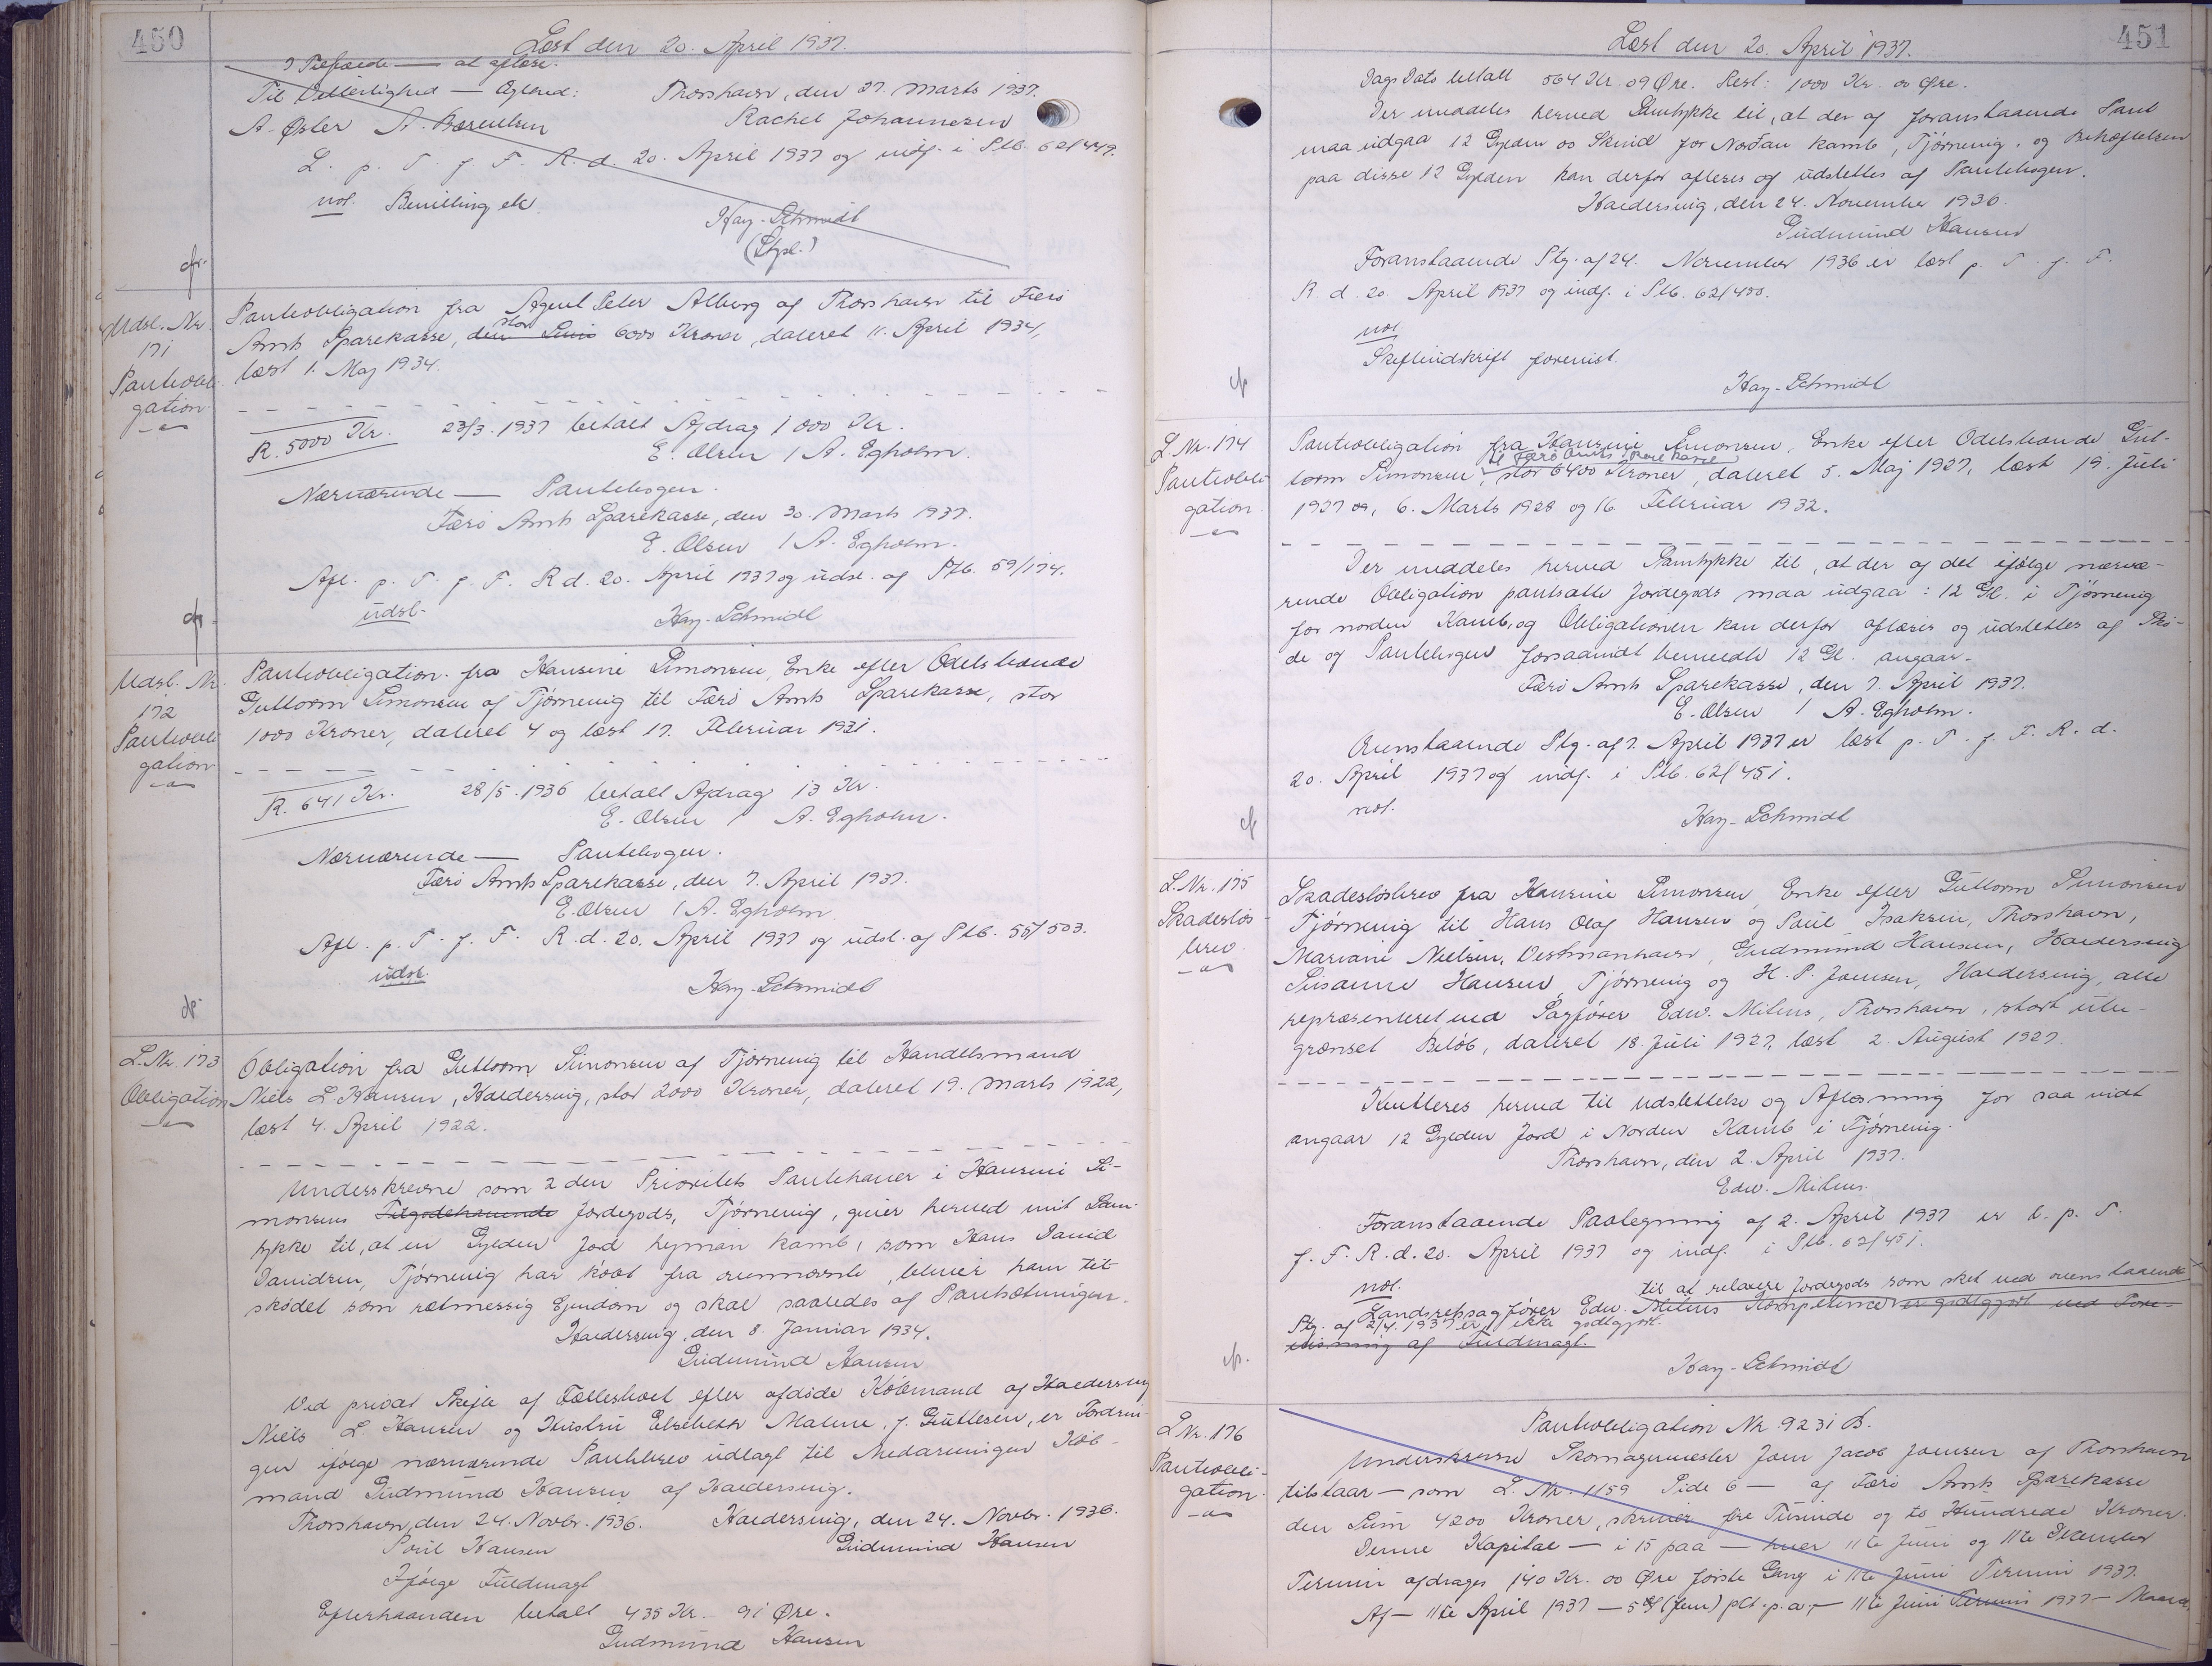 450
Læst den 20. April 1937.
I Tilfælde — at aflæse.
Til Vitterlighed — Egtend: Thorshavn, den 27. Marts 1937.
A. Øster A. Berentsen Rachel Johannesen
L. p. T. f. F. R. d. 20. April 1937 og indf. i Ptb. 62/449.
not. Bevilling etc.
Kay-Schmidt
(Stpl.)
cfr.
Udsl. Nr.
171
Pantvobli-
gation
Pantvobligation fra Agent Peter Alberg af Thorshavn til Færø
Amts Sparekasse, den Sum stor 6000 Kroner, dateret 11. April 1934,
læst 1. Maj 1934.
R. 5000 Kr. 23/3. 1937 betalt Afdrag 1000 Kr.
E. Olsen / A. Egholm.
Nærværende — Pantebogen.
Færø Amts Sparekasse, den 30. Marts 1937.
E. Olsen / A. Egholm.
Afl. p. T. f. F. R. d. 20. April 1937 og udsl. af Ptb. 59/174.
udsl.
Kay-Schmidt
cfr.
Udsl. Nr.
172
Pantvobli
gation
Pantvobligation fra Hansine Simonsen, Enke efter Odelsbonde
Guttorm Simonsen af Tjørnevig til Færø Amts Sparekasse, stor
1000 Kroner, dateret 4 og læst 17. Februar 1931.
R. 641 Kr. 28/5. 1936 betalt Afdrag 13 Kr.
E. Olsen / A. Egholm.
Nærværende — Pantebogen.
Færø Amts Sparekasse, den 7. April 1937.
E. Olsen / A. Egholm
Afl. p. T. f. F. R. d. 20. April 1937 og udsl. af Ptb. 55/503.
udsl.
Kay-Schmidt
cfr.
L. Nr. 173
Obligation
Obligation fra Guttorm Simonsen af Tjørnevig til Handelsmand
Niels L. Hansen, Haldersvig, stor 2000 Kroner, dateret 19. Marts 1922,
læst 4. April 1922.
Underskrevne som 2den Prioritets Panthaver i Hansine Si-
monsens Tilgodehavende Jordegods, Tjørnevig, giver herved mit Sam-
tykke til, at en Gylden Jord heyman kamb, som Hans David
Davidsen, Tjørnevig har købt fra ovennævnte, bliver ham til-
skødet som retmessig Ejendom og skal saaledes af Pantsætningen.
Haldersvig, den 8. Januar 1934.
Gudmund Hansen
Ved privat Skifte af Fællesboet efter afdøde Købmand af Haldersvig
Niels L. Hansen og Hustru Elsebeth Malene, f. Guttesen, er Fordrin-
gen ifølge nærværende Pantebrev udlagt til Medarvingen Køb-
mand Gudmund Hansen af Haldersvig.
Thorshavn, den 24. Novbr. 1936. Haldersvig, den 24. Novbr. 1936.
Poul Hansen Gudmund Hansen
Ifølge Fuldmagt
Efterhaanden betalt 435 Kr. 91 Øre.
Gudmund Hansen
451
Læst den 20. April 1937.
Dags Dato betalt 564 Kr. 09 Øre. Rest: 1000 Kr. 00 Øre.
Der meddeles herved Samtykke til, at der af foranstaaende Pant
maa udgaa 12 Gylden 00 Skind for Norðan kamb, Tjörnevig, og Behæftelsen
paa disse 12 Gylden kan derfor aflæses og udslettes af Pantebogen.
Haldersvig, den 24. November 1936.
Gudmund Hansen
Foranstaaende Ptg. af 24. November 1936 er læst p. T. f. F.
R. d. 20. April 1937 og indf. i Ptb. 62/450.
not.
Skifteudskrift forevist.
Kay-Schmidt
cfr
L. Nr. 174
Pantvobli-
gation
Pantvobligation fra Hansine Simonsen, Enke efter Odelsbonde Gut-
til Færø Amts Sparekasse
torm Simonsen, stor 6400 Kroner, dateret 5. Maj 1927, læst 19. Juli
1927 og, 6. Marts 1928 og 16. Februar 1932.
Der meddeles herved Samtykke til, at der af det ifølge nærvæ-
rende Obligation pantsatte Jordegods maa udgaa: 12 Gl. i Tjörnevig
for norden Kamb, og Obligationen kan derfor aflæses og udslettes af Skø-
de og Pantebogen forsaavidt bemeldte 12 Gl. angaar.
Færø Amts Sparekasse, den 7. April 1937.
E. Olsen / A. Egholm.
Ovenstaaende Ptg. af 7. April 1937 er læst p. T. f. F. R. d.
20. April 1937 og indf. i Ptb. 62/451.
not.
Kay-Schmidt
cfr
L. Nr. 175
Skadesløs
brev
Skadesløsbrev fra Hansine Simonsen, Enke efter Guttorm Simonsen
Tjørnevig til Hans Olaf Hansen og Poul Isaksen, Thorshavn,
Mariane Nielsen, Vestmanhavn, Gudmund Hansen, Haldersvig
Susanne Hansen, Tjørnevig og H. P. Joensen, Haldersvig, alle
repræsenteret ved Sagfører Edw. Mitens, Thorshavn, stort ube-
grænset Beløb, dateret 18. Juli 1927, læst 2. August 1927.
Kvitteres herved til Udslettelse og Aflæsning for saa vidt
angaar 12 Gylden Jord i Norden Kamb i Tjørnevig.
Thorshavn, den 2. April 1937.
Edw. Mitens.
Foranstaaende Paategning af 2. April 1937 er l. p. T.
f. F. R. d. 20. April 1937 og indf. i Ptb. 62/451.
not.
til at relaxere Jordegods som sket ved ovenstaaende
Landsretssagfører Edw. Mitens Kompetence er godtgjort ved Fore-
Ptg. af 2/4. 1937 er ikke godtgjort.
visning af Fuldmagt.
Kay-Schmidt
cfr.
L Nr. 176
Pantvobli-
gation
Pantvobligation Nr. 9231 B.
Underskrevne Skomagermester Joen Jacob Joensen af Thorshavn
tilstaar — som L. Nr. 1159 Side 6 — af Færø Amts Sparekasse
den Sum 4200 Kroner, skriver fire Tusinde og to Hundrede Kroner.
Denne Kapital — i 15 paa — hver 11te Juni og 11te December
Termin afdrages 140 Kr. 00 Øre første Gang i 11te Juni Termin 1937.
Af — 11te April 1937 — 5 % (fem) pCt. p. a. — 11te Juni Termin 1937 —